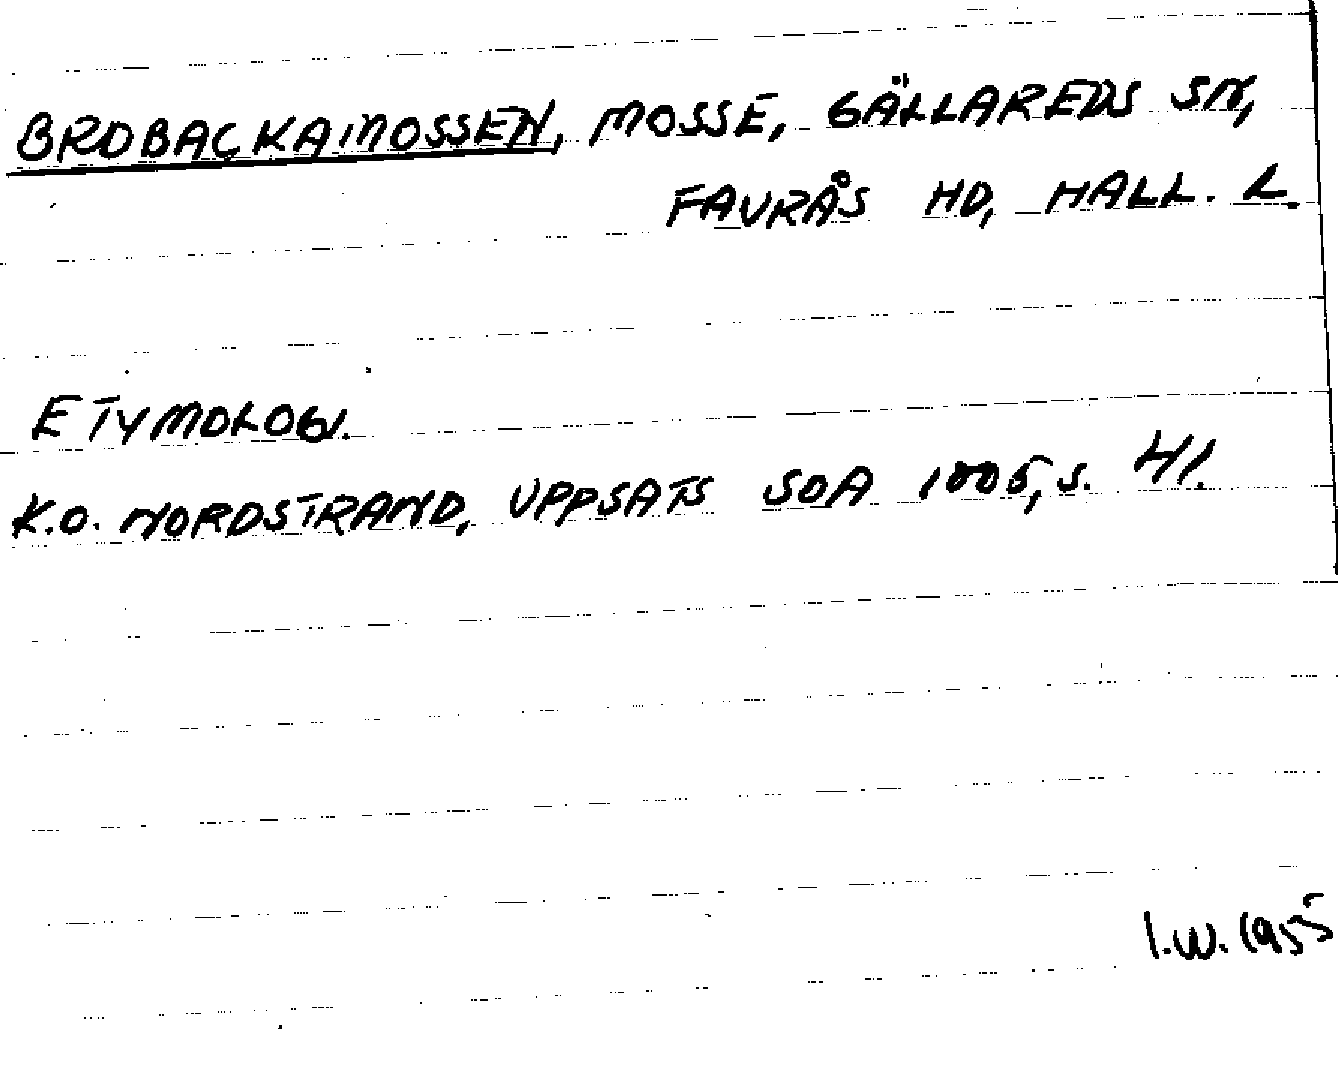 BROBACKAMOSSEN, MOSSE, GÄLLAREDS SN,
FAURÅS HD, HALL. L.
ETYMOLOGI.
K.O. NORDSTRAND, UPPSATS SOA 1005, S. 41.
I.W. 1955